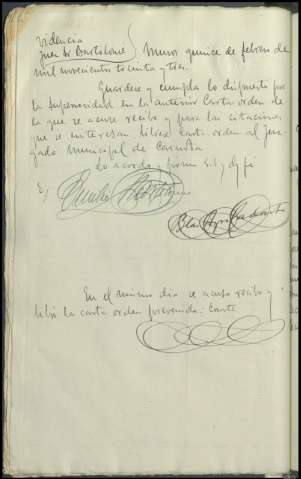 videncia
Juez Sr Bartolomé } Muros quince de febrero de
mil novecientos treinta y tres.
Guardese y cumpla lo dispuesto por
la superioridad en la anterior Carta-orden de
la que se acuse recibo y para las citaciones
que se interesan, librese carta-orden al Juz-
gado municipal de Carnota
Lo acordó y firma S.S. doy fé
E/ Emilio
Blas
En el mismo dia se acusó recibo y
libró la carta orden prevenida: Conste